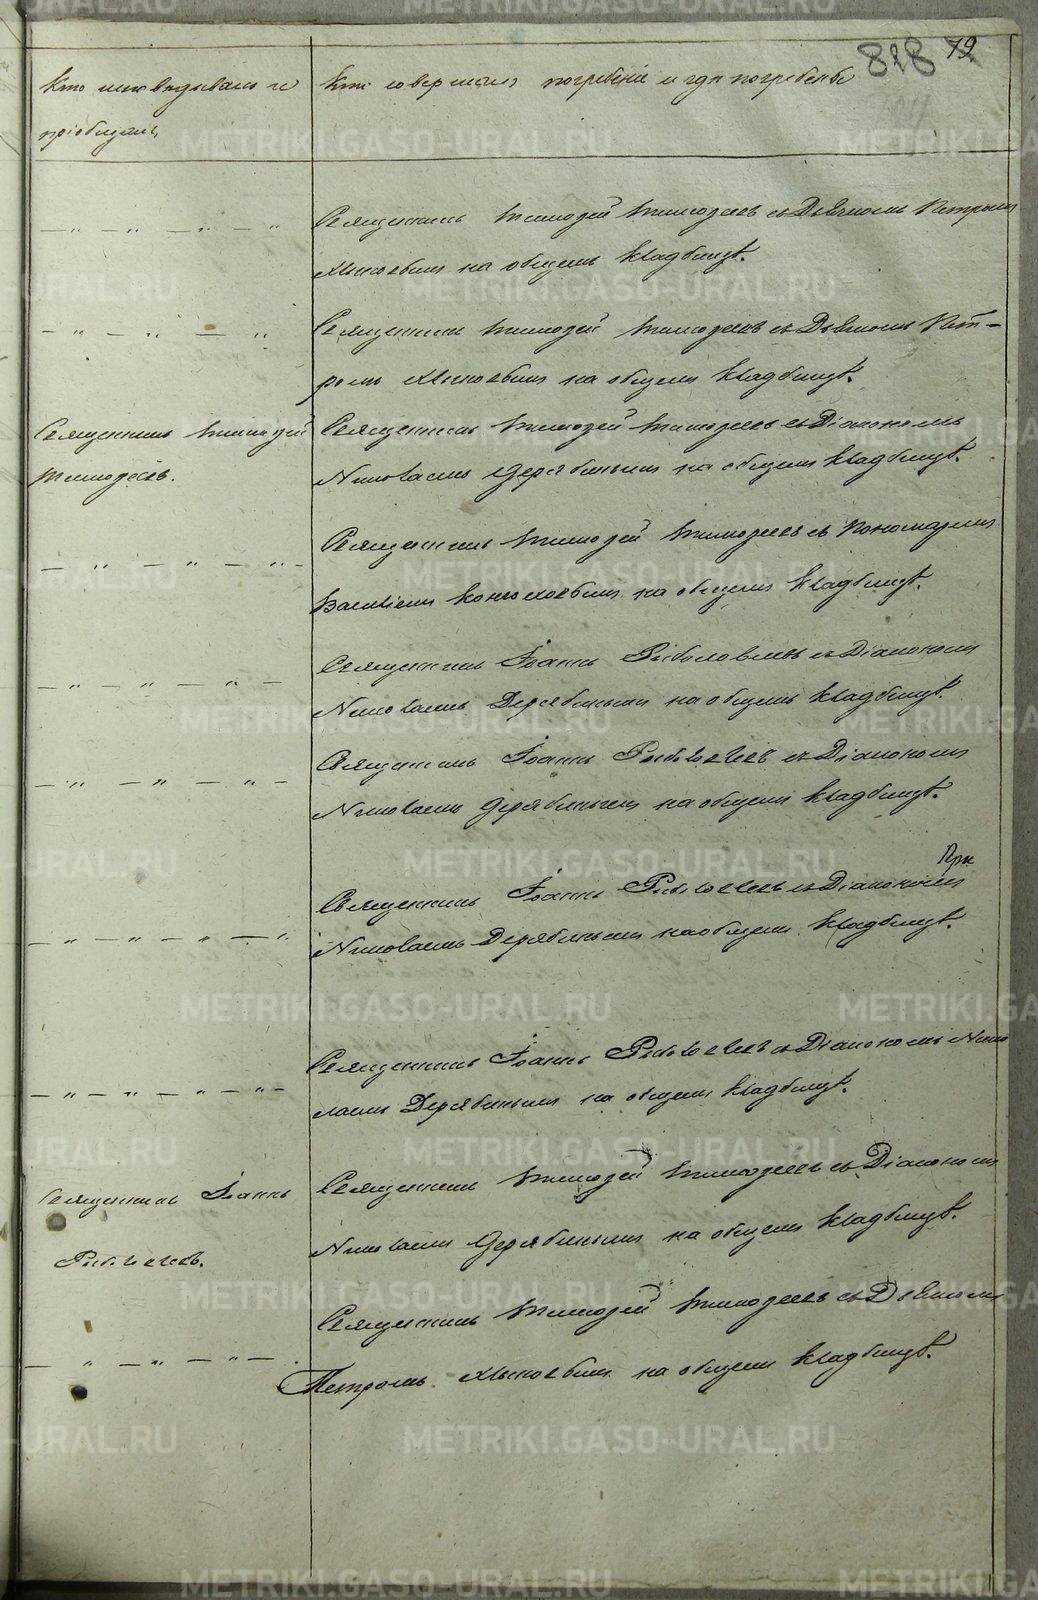 828 79
Кто исповѣдывалъ и
пріобщалъ
Кто совершалъ погребеніе и гдѣ погребены
Священникъ Тимоѳей Тимоѳеевъ съ Дьячкомъ Петромъ
на общемъ кладбищѣ.
Священникъ Тимоѳей Тимоѳеевъ съ Дьячкомъ Пет-
ромъ на общемъ кладбищѣ.
Священникъ Тимоѳей
Тимоѳеевъ.
Священникъ Тимоѳей Тимоѳеевъ съ Діакономъ
Николаемъ Дерябинымъ на общемъ кладбищѣ.
Священникъ Тимоѳей Тимоѳеевъ съ Пономаремъ
Василіемъ на общемъ кладбищѣ.
Священникъ Іоаннъ съ Діакономъ
Николаемъ Дерябинымъ на общемъ кладбищѣ.
Священникъ Іоаннъ съ Діакономъ
Николаемъ Дерябинымъ на общемъ кладбищѣ.
При
Священникъ Іоаннъ съ Діакономъ
Николаемъ Дерябинымъ на общемъ кладбищѣ.
Священникъ Іоаннъ съ Діакономъ Нико
лаемъ Дерябинымъ на общемъ кладбищѣ.
Священникъ Іоаннъ
Священникъ Тимоѳей Тимоѳеевъ съ Діакономъ
Николаемъ Дерябинымъ на общемъ кладбищѣ.
Священникъ Тимоѳей Тимоѳеевъ съ Дьячкомъ
Петромъ на общемъ кладбищѣ.
METRIKI.GASO-URAL.RU